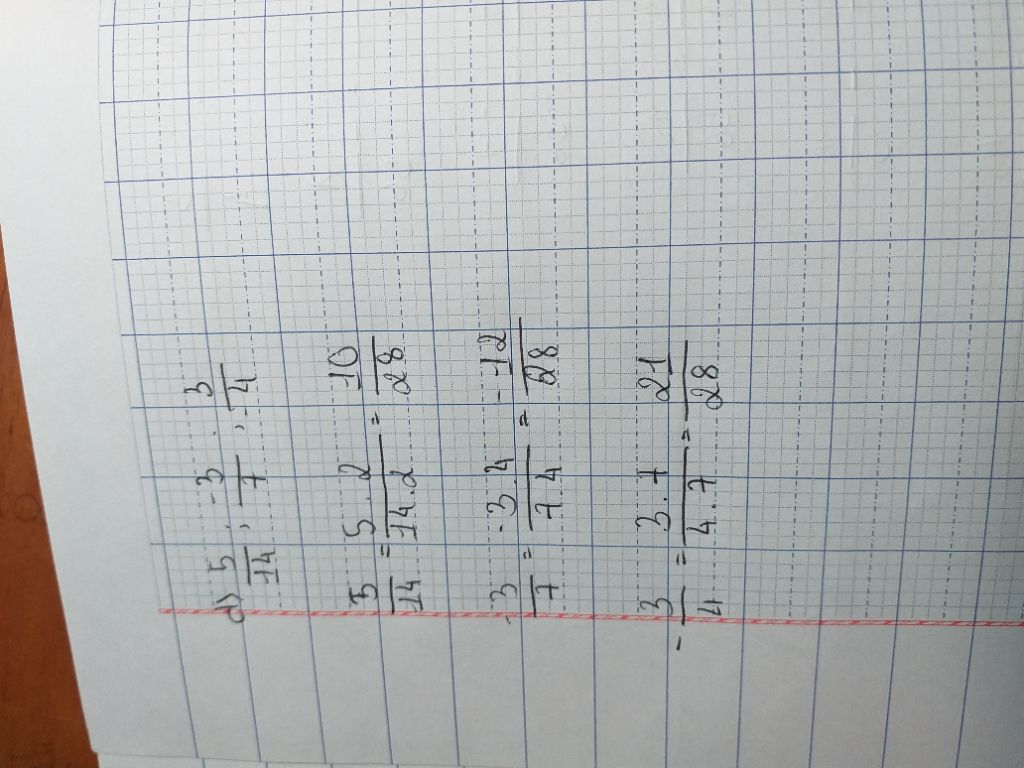 d) 5/14 ; -3/7 ; 3/4
5/14 = 5.2/14.2 = 10/28
-3/7 = -3.4/7.4 = -12/28
- 3/4 = 3.7/4.7 = 21/28